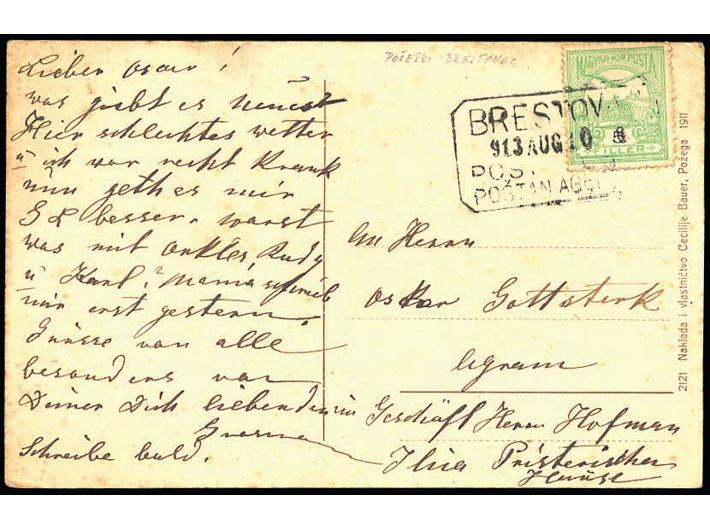 Lieber Oscar!
was giebt es neues?
Hier schlechtes wetter
u ich war recht Krank
nun geth es mir
G L besser. warst
was mit onkles Rudy
u Karl? Mama schrieb
mir erst gestern.
Grüsse von alle
besonders von
Deiner Dich liebenden
Schreibe bald.
POŽEŠKI BRESTOVAC
BRESTOVA
913 AUG 10
POŠTAN. AGEN
MAGYAR KIR. POSTA
FILLER
An Herrn
Oskar Gottsterk
Agram
in Geschäft Herrn Hofman
Ilica Pristerischen
Hause
2121 Naklada i vlastničtvo Cecilije Bauer, Požega 1911